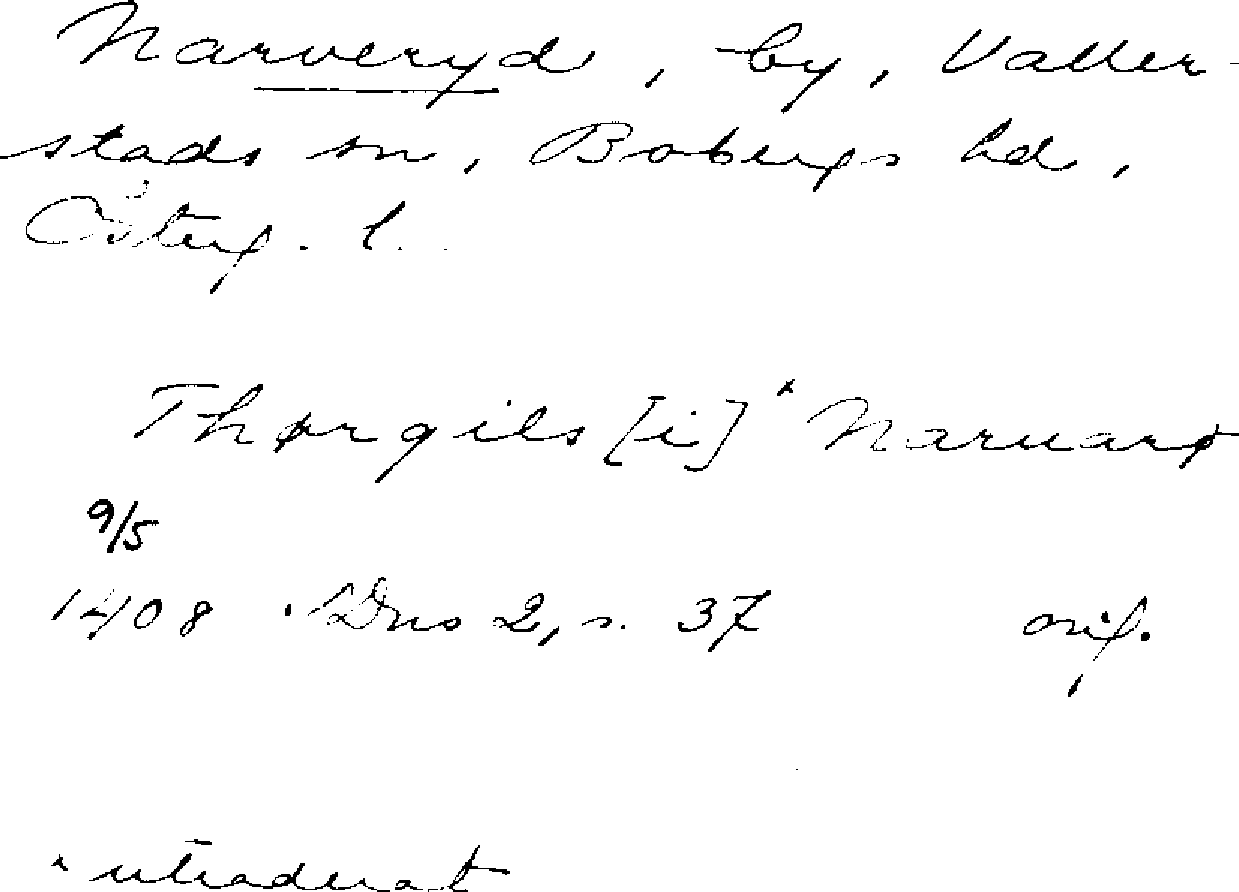 Narveryd, by, Valler-
stads sn, Bobergs hd,
Österg. l.
Thørgils [i] x Naruarø
9/5
1408 SDns 2, s. 37 orig.
x utraderat